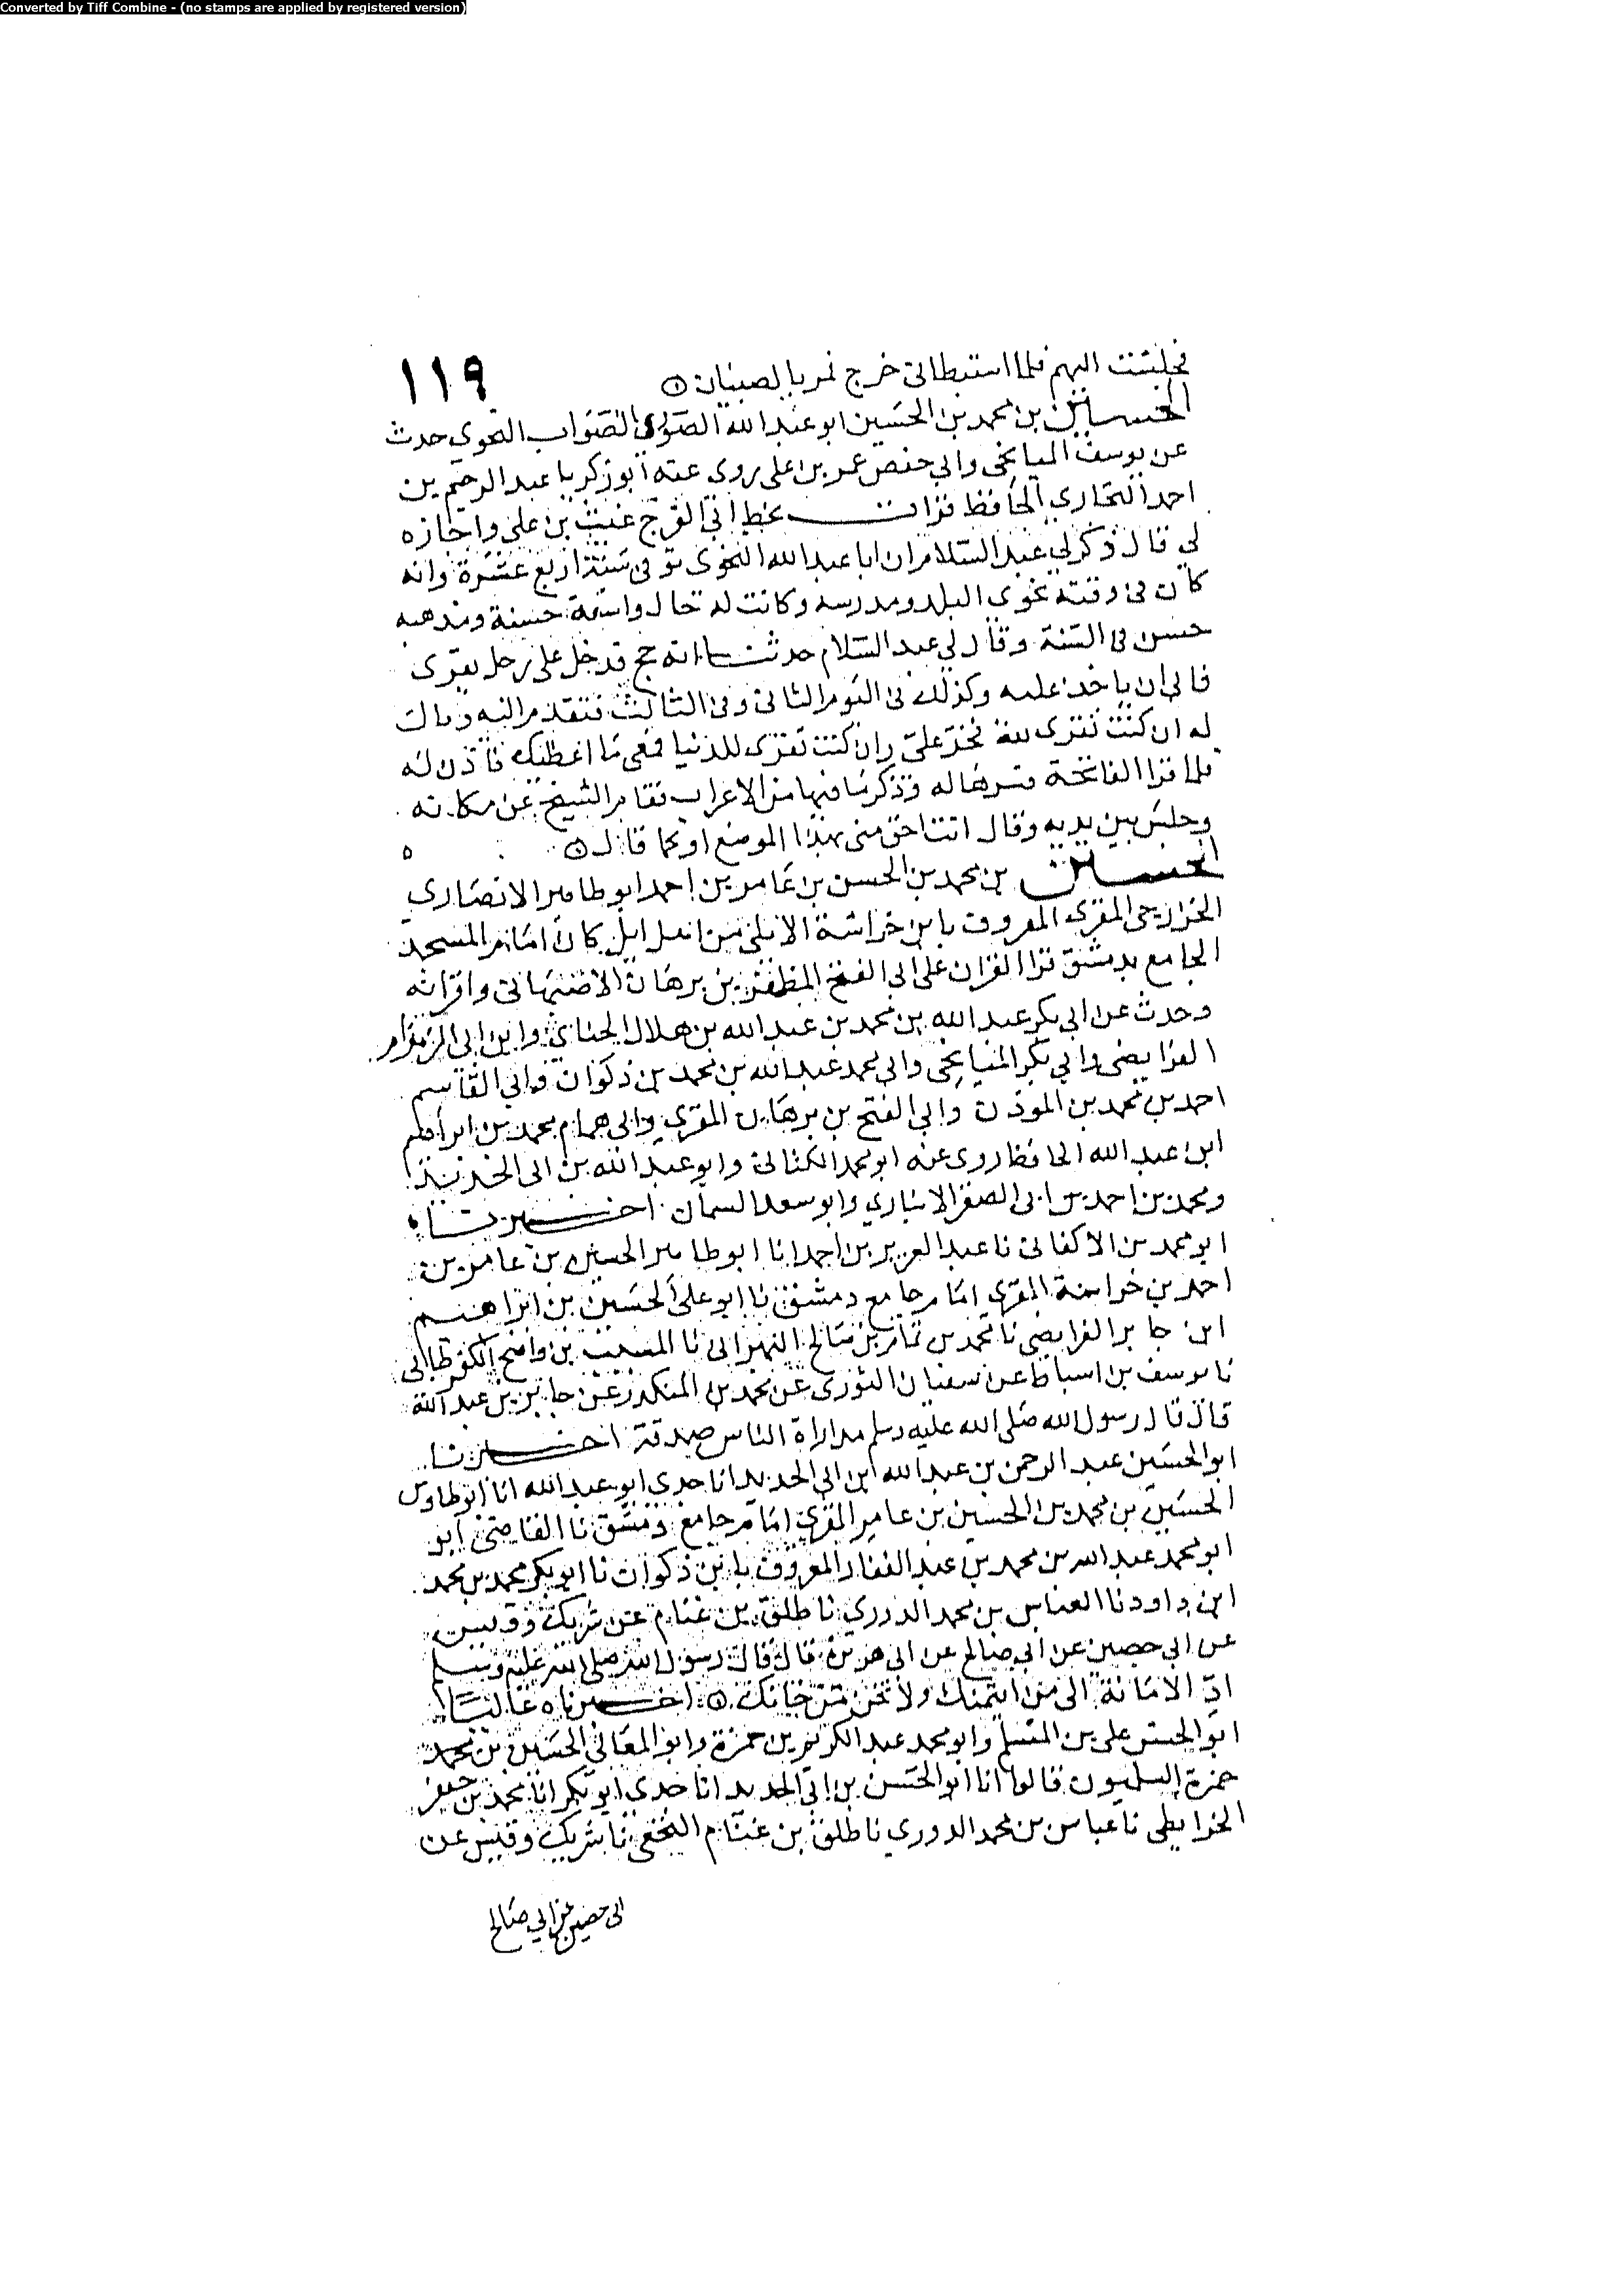 Converted by Tiff Combine - (no stamps are applied by registered version)
١١٩
فجلست اليهم فلما استبطاني خرج فمر بالصبيان
الحسين بن محمد بن الحسين ابو عبد الله الصوري النحوي حدث
عن يوسف الميانجي وابي حفص عمر بن علي روى عنه ابو زكريا عبد الرحيم بن
احمد البخاري الحافظ قرات بخط ابي الفرج غيث بن علي واجازه
لي قال ذكر لي عبد السلام ان ابا عبد الله النحوي توفى سنة اربع عشرة وانه
كان في وقته نحوى البلد ومدرسه وكانت له حال واسعة حسنة ومذهبه
حسن في السنة وقال لي عبد السلام حدثنا انه حج فدخل على رجل يقرى
فابى ان ياخذ عليه وكذلك في اليوم الثاني وفي الثالث فتقدم اليه وقال
له ان كنت تقرى لله فخذ علي وان كنت تقرى للدنيا فمعي ما اعطيك فاذن له
فلما قرا الفاتحة فسرها له وذكر ما فيها من الاعراب فقام الشيخ عن مكانه
وجلس بين يديه وقال انت احق مني بهذا الموضع او كما قال
الحسين بن محمد بن الحسن بن عامر بن احمد ابو طاهر الانصاري
الخزرجي المقرى المعروف بابن خراشة الابلي من اهل ابل كان امام المسجد
الجامع بدمشق قرا القران على ابي الفتح المظفر بن برهان الاصبهاني واقرانه
وحدث عن ابي بكر عبد الله بن محمد بن عبد الله بن هلال الحنائي وابن ابي الزمزام
الفرايضي وابي بكر الميانجي وابي محمد عبد الله بن محمد بن ذكوان وابي القاسم
احمد بن محمد بن الموذن وابي الفتح بن برهان المقرى وابي همام محمد بن ابراهيم
ابن عبد الله الحافظ روى عنه ابو محمد الكتاني وابو عبد الله بن ابي الحديد
ومحمد بن احمد بن ابي الصقر الانباري وابو سعد السمان اخبرنا
ابو محمد بن الاكفاني نا عبد العزيز بن احمد انا ابو طاهر الحسين بن عامر بن
احمد بن خراشة المقرى امام جامع دمشق نا ابو علي الحسين بن ابراهيم
ابن جابر الفرايضي نا محمد بن تمام بن صالح البهراني نا المسيب بن واضح
نا يوسف بن اسباط عن سفيان الثورى عن محمد بن المنكدر عن جابر بن عبد الله
قال قال رسول الله صلى الله عليه وسلم مداراة الناس صدقة اخبرنا
ابو الحسين عبد الرحمن بن عبد الله ابن ابي الحديد انا جدي ابو عبد الله انا ابو طاهر
الحسين بن محمد بن الحسين بن عامر المقرى امام جامع دمشق نا القاضي ابو
ابو محمد عبد الله بن محمد بن عبد الغفار المعروف بابن ذكوان نا ابو بكر محمد بن محمد
ابن داود نا العباس بن محمد الدوري نا طلق بن غنام عن شريك وقيس
عن ابي حصين عن ابي صالح عن ابي هريرة قال قال رسول الله صلى الله عليه وسلم
ادّ الامانة الى من ايتمنك ولا تخن من خانك اخبرناه عاليا
ابو الحسن علي بن المسلم وابو محمد عبد الكريم بن حمزة وابو المعالي الحسين بن محمد
حمزة السلميون قالوا انا ابو الحسن بن ابي الحديد انا جدي ابو بكر انا محمد بن جعفر
الخرايطي نا عباس بن محمد الدوري نا طلق بن غنام النخعي نا شريك وقيس عن
ابي حصين عن ابي صالح